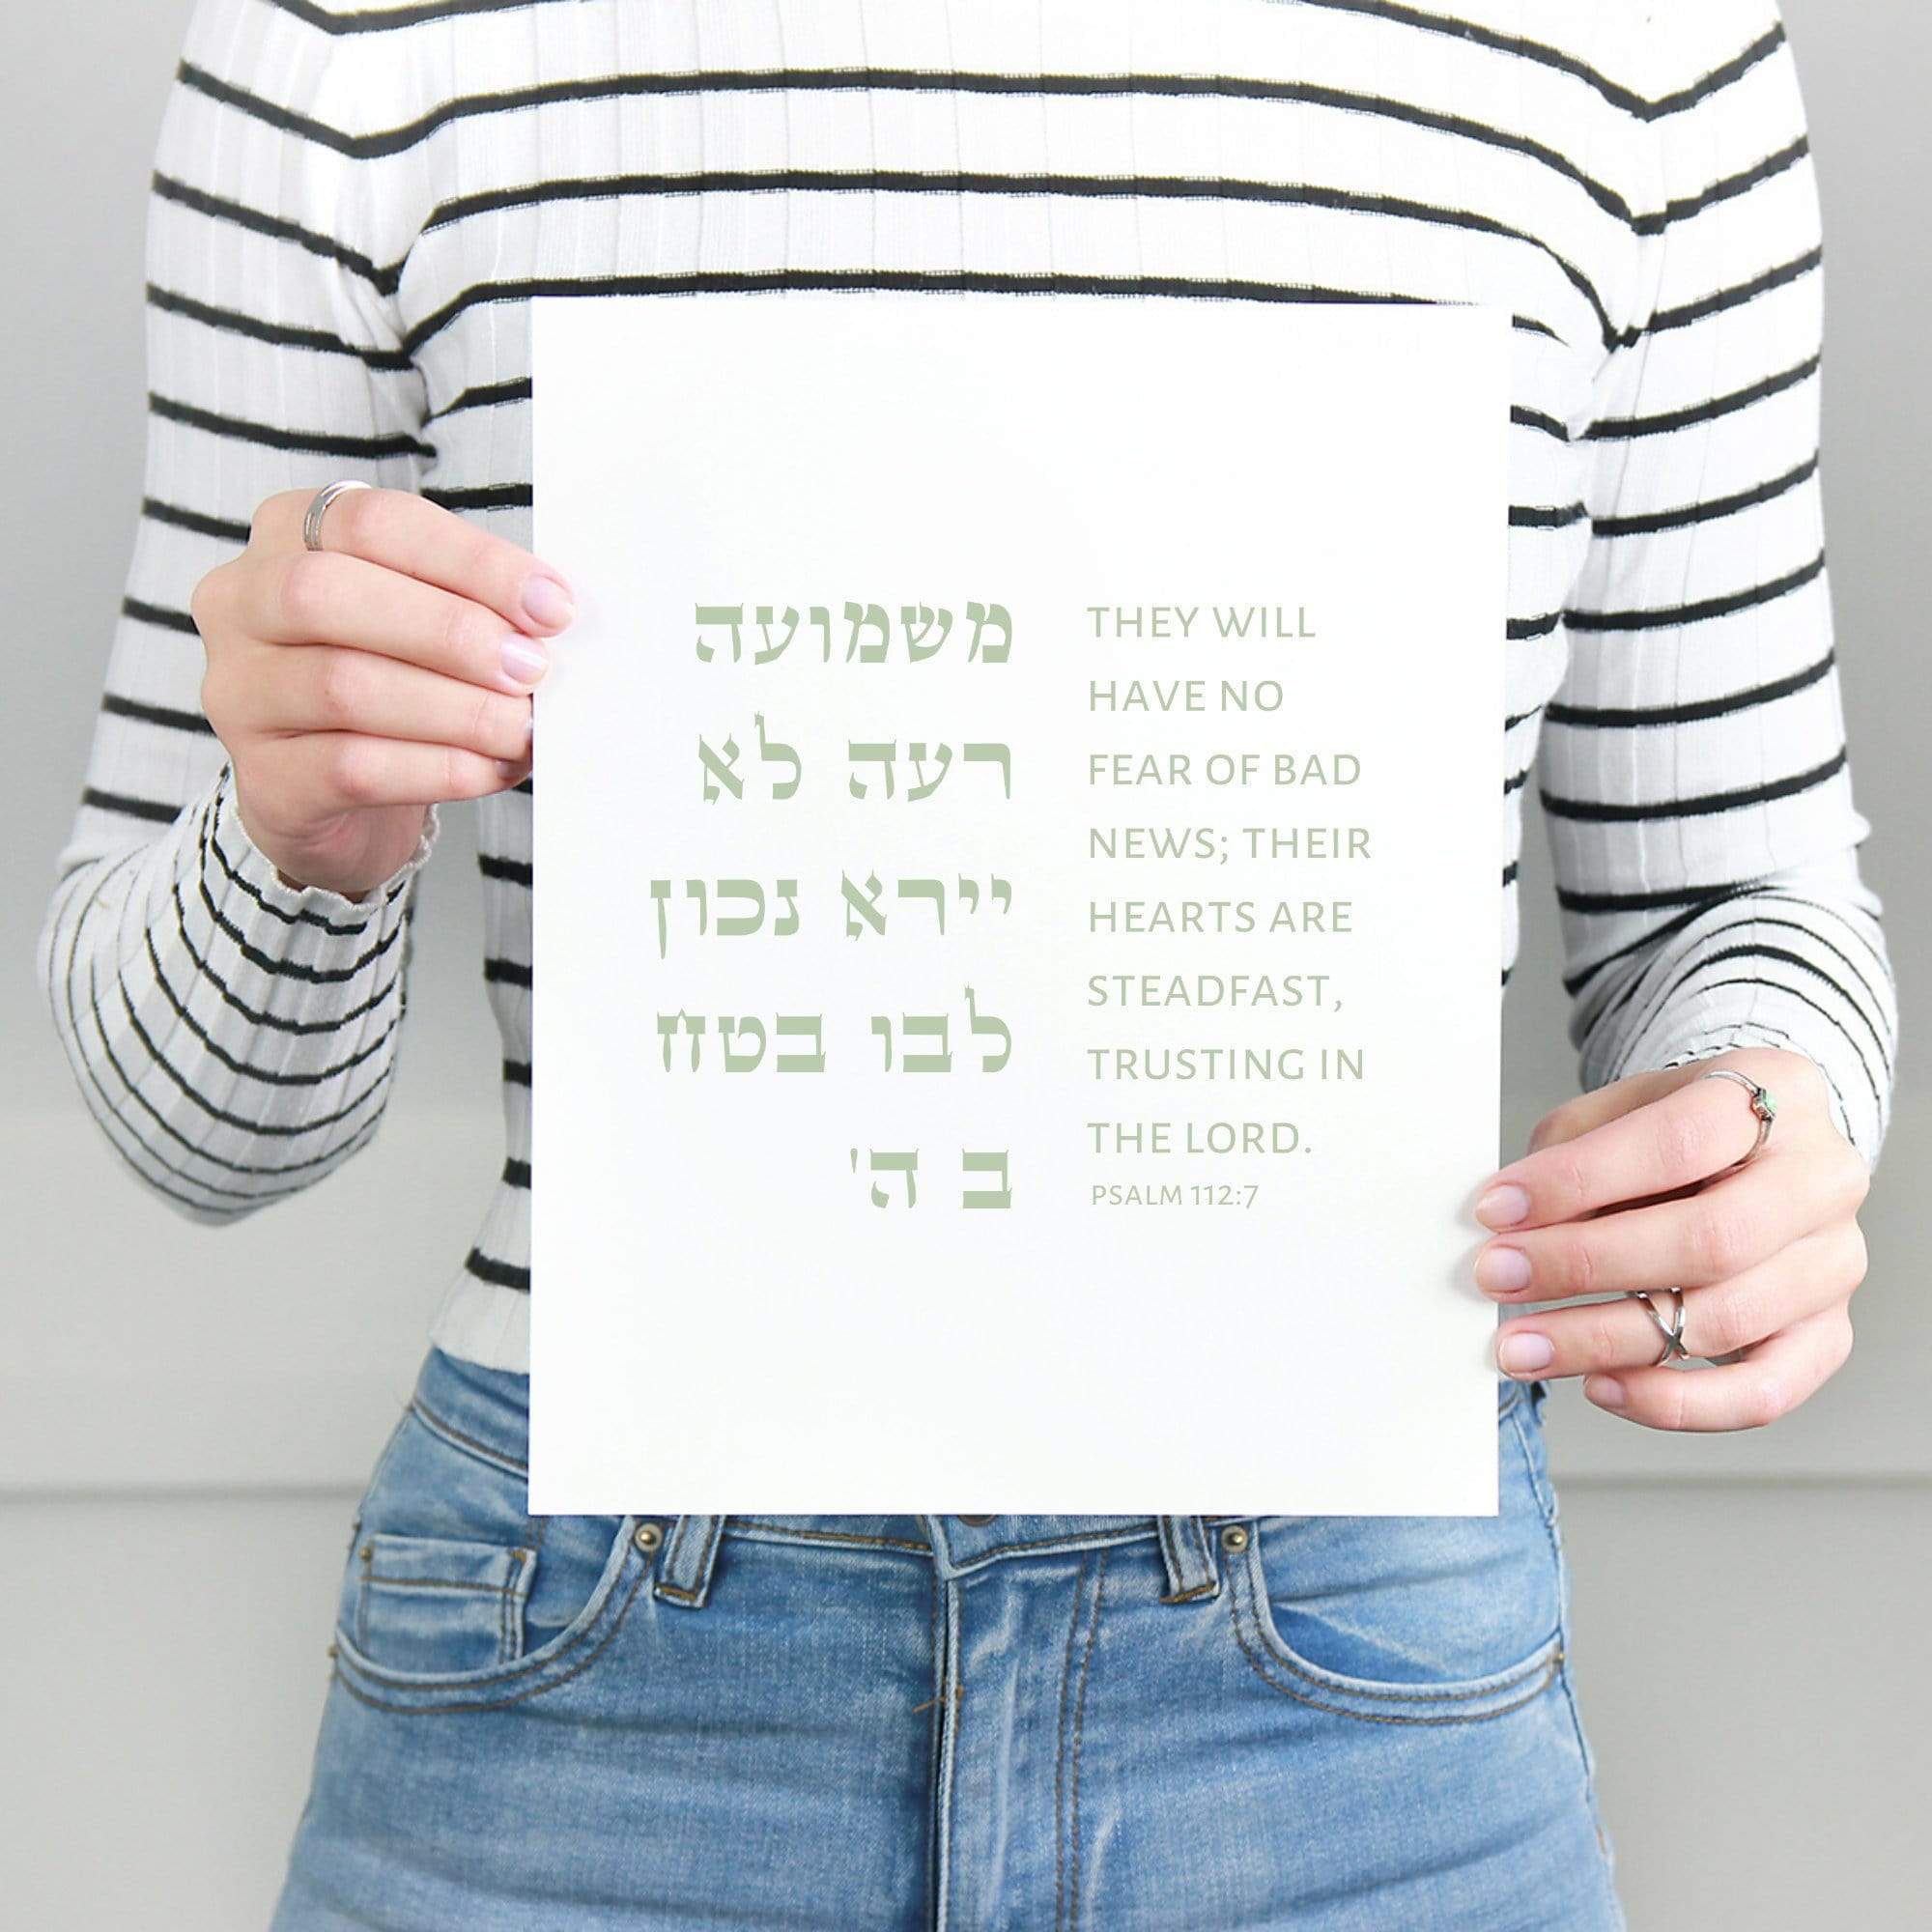 משמועה
רעה לא
יירא נכון
לבו בטח
ב ה'
THEY WILL
HAVE NO
FEAR OF BAD
NEWS; THEIR
HEARTS ARE
STEADFAST,
TRUSTING IN
THE LORD.
PSALM 112:7